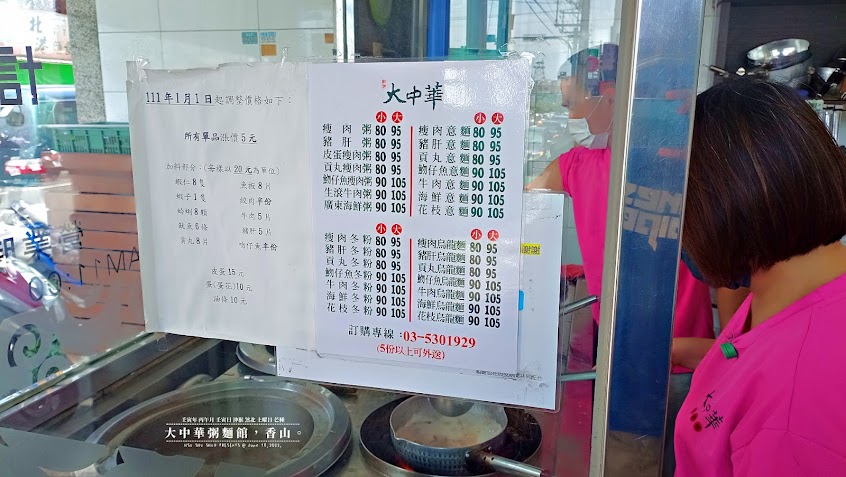 111年1月1日起調整價格如下：
所有單品漲價5元
加料部分：(每樣以20元為單位)
蝦仁8隻
魚板8片
蝦子1隻
絞肉半份
蛤蜊8顆
牛肉5片
魷魚6條
豬肝5片
貢丸8片
吻仔魚半份
皮蛋15元
蛋(蛋花)10元
油條10元
大中華
小 大
瘦肉粥 80 95
豬肝粥 80 95
皮蛋瘦肉粥 80 95
貢丸瘦肉粥 80 95
魩仔魚瘦肉粥 90 105
生滾牛肉粥 90 105
廣東海鮮粥 90 105
小 大
瘦肉意麵 80 95
豬肝意麵 80 95
貢丸意麵 80 95
魩仔魚意麵 90 105
牛肉意麵 90 105
海鮮意麵 90 105
花枝意麵 90 105
小 大
瘦肉冬粉 80 95
豬肝冬粉 80 95
貢丸冬粉 80 95
魩仔魚冬粉 90 105
牛肉冬粉 90 105
海鮮冬粉 90 105
花枝冬粉 90 105
小 大
瘦肉烏龍麵 80 95
豬肝烏龍麵 80 95
貢丸烏龍麵 80 95
魩仔魚烏龍麵 90 105
牛肉烏龍麵 90 105
海鮮烏龍麵 90 105
花枝烏龍麵 90 105
訂購專線：03-5301929
(5份以上可外送)
謝謝
計
營業中
大中華
壬寅年 丙午月 壬寅日 沖猴 煞北 土曜日 芒種
大中華粥麵館，香山。